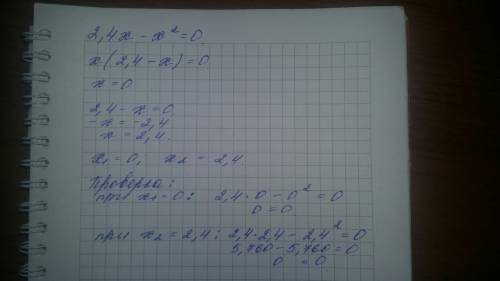 2,4x - x² = 0
x(2,4 - x) = 0
x = 0
2,4 - x = 0
-x = -2,4
x = 2,4.
x₁ = 0, x₂ = 2,4
Проверка:
при x₁ = 0: 2,4 · 0 - 0² = 0
0 = 0
при x₂ = 2,4: 2,4 · 2,4 - 2,4² = 0
5,760 - 5,760 = 0
0 = 0